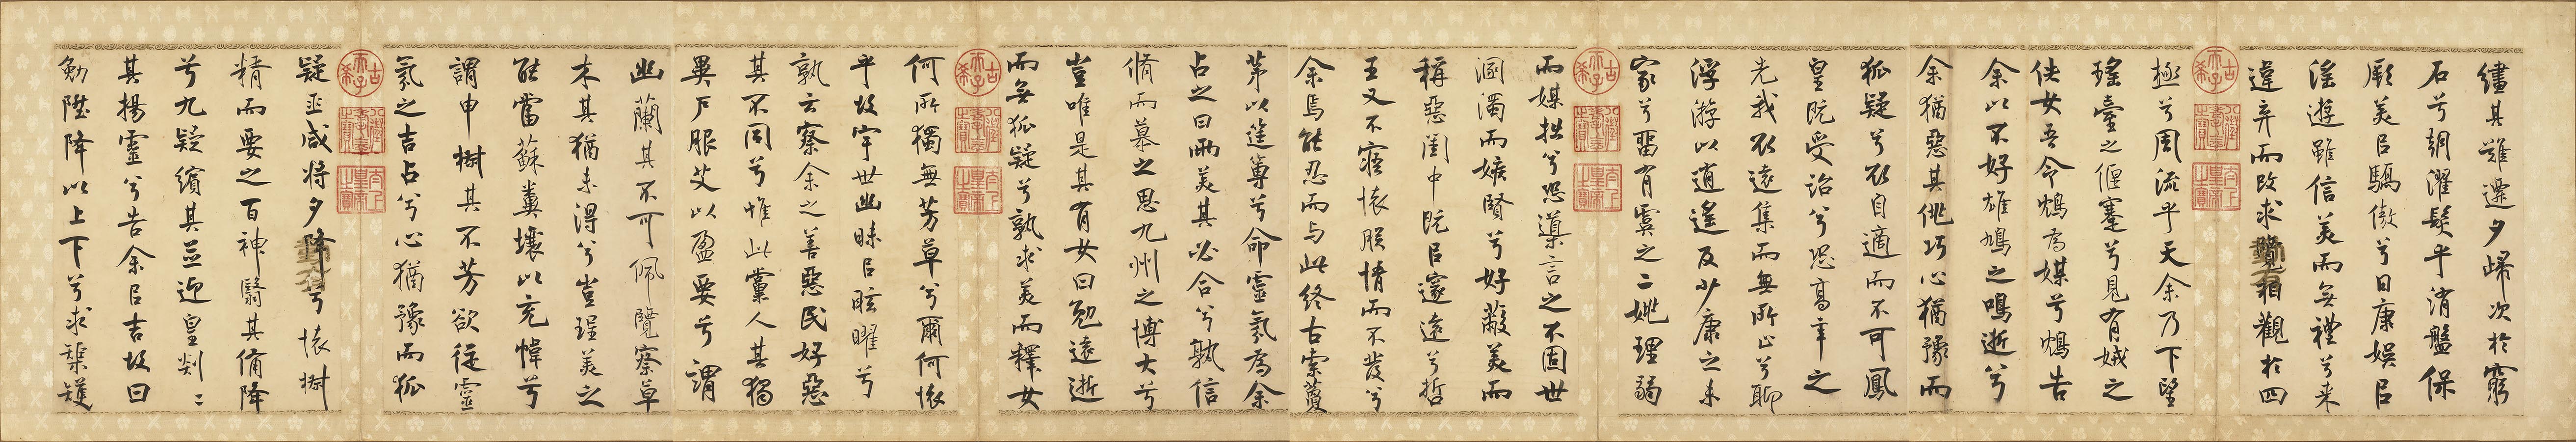 繣其難遷夕歸次於窮
石兮朝濯髮乎洧盤保
厥美㠯驕傲兮日康娛㠯
淫遊雖信美而無禮兮来
違弃而改求覽相觀於四
古希天子
八徵耄念之寶
太上皇帝之寶
極兮周流乎天余乃下望
瑤臺之偃蹇兮見有娀之
佚女吾令鴆為媒兮鴆告
余以不好雄鳩之鳴逝兮
余猶惡其佻巧心猶豫而
狐疑兮欲自適而不可鳳
皇既受詒兮恐高辛之
先我欲遠集而無所止兮聊
浮游以逍遙及少康之未
家兮留有虞之二姚理弱
古希天子
八徵耄念之寶
太上皇帝之寶
而媒拙兮恐導言之不固世
溷濁而嫉賢兮好蔽美而
稱惡閨中既㠯邃遠兮哲
王又不寤懷朕情而不發兮
余焉能忍而与此終古索藑
茅以筳篿兮命靈氛為余
占之曰兩美其必合兮孰信
脩而慕之思九州之博大兮
豈唯是其有女曰勉遠逝
而無狐疑兮孰求美而釋女
古希天子
八徵耄念之寶
太上皇帝之寶
何所獨無芳草兮爾何懷
乎故宇世幽昧㠯眩曜兮
孰云察余之善惡民好惡
其不同兮惟此黨人其獨
異戶服艾以盈要兮謂
幽蘭其不可佩覽察草
木其猶未得兮豈珵美之
能當蘇糞壤以充幃兮
謂申椒其不芳欲從靈
氛之吉占兮心猶豫而狐
古希天子
八徵耄念之寶
太上皇帝之寶
疑巫咸將夕降兮懷椒
精而要之百神翳其備降
兮九疑繽其並迎皇剡々
其揚靈兮告余㠯吉故曰
勉陞降以上下兮求榘矱